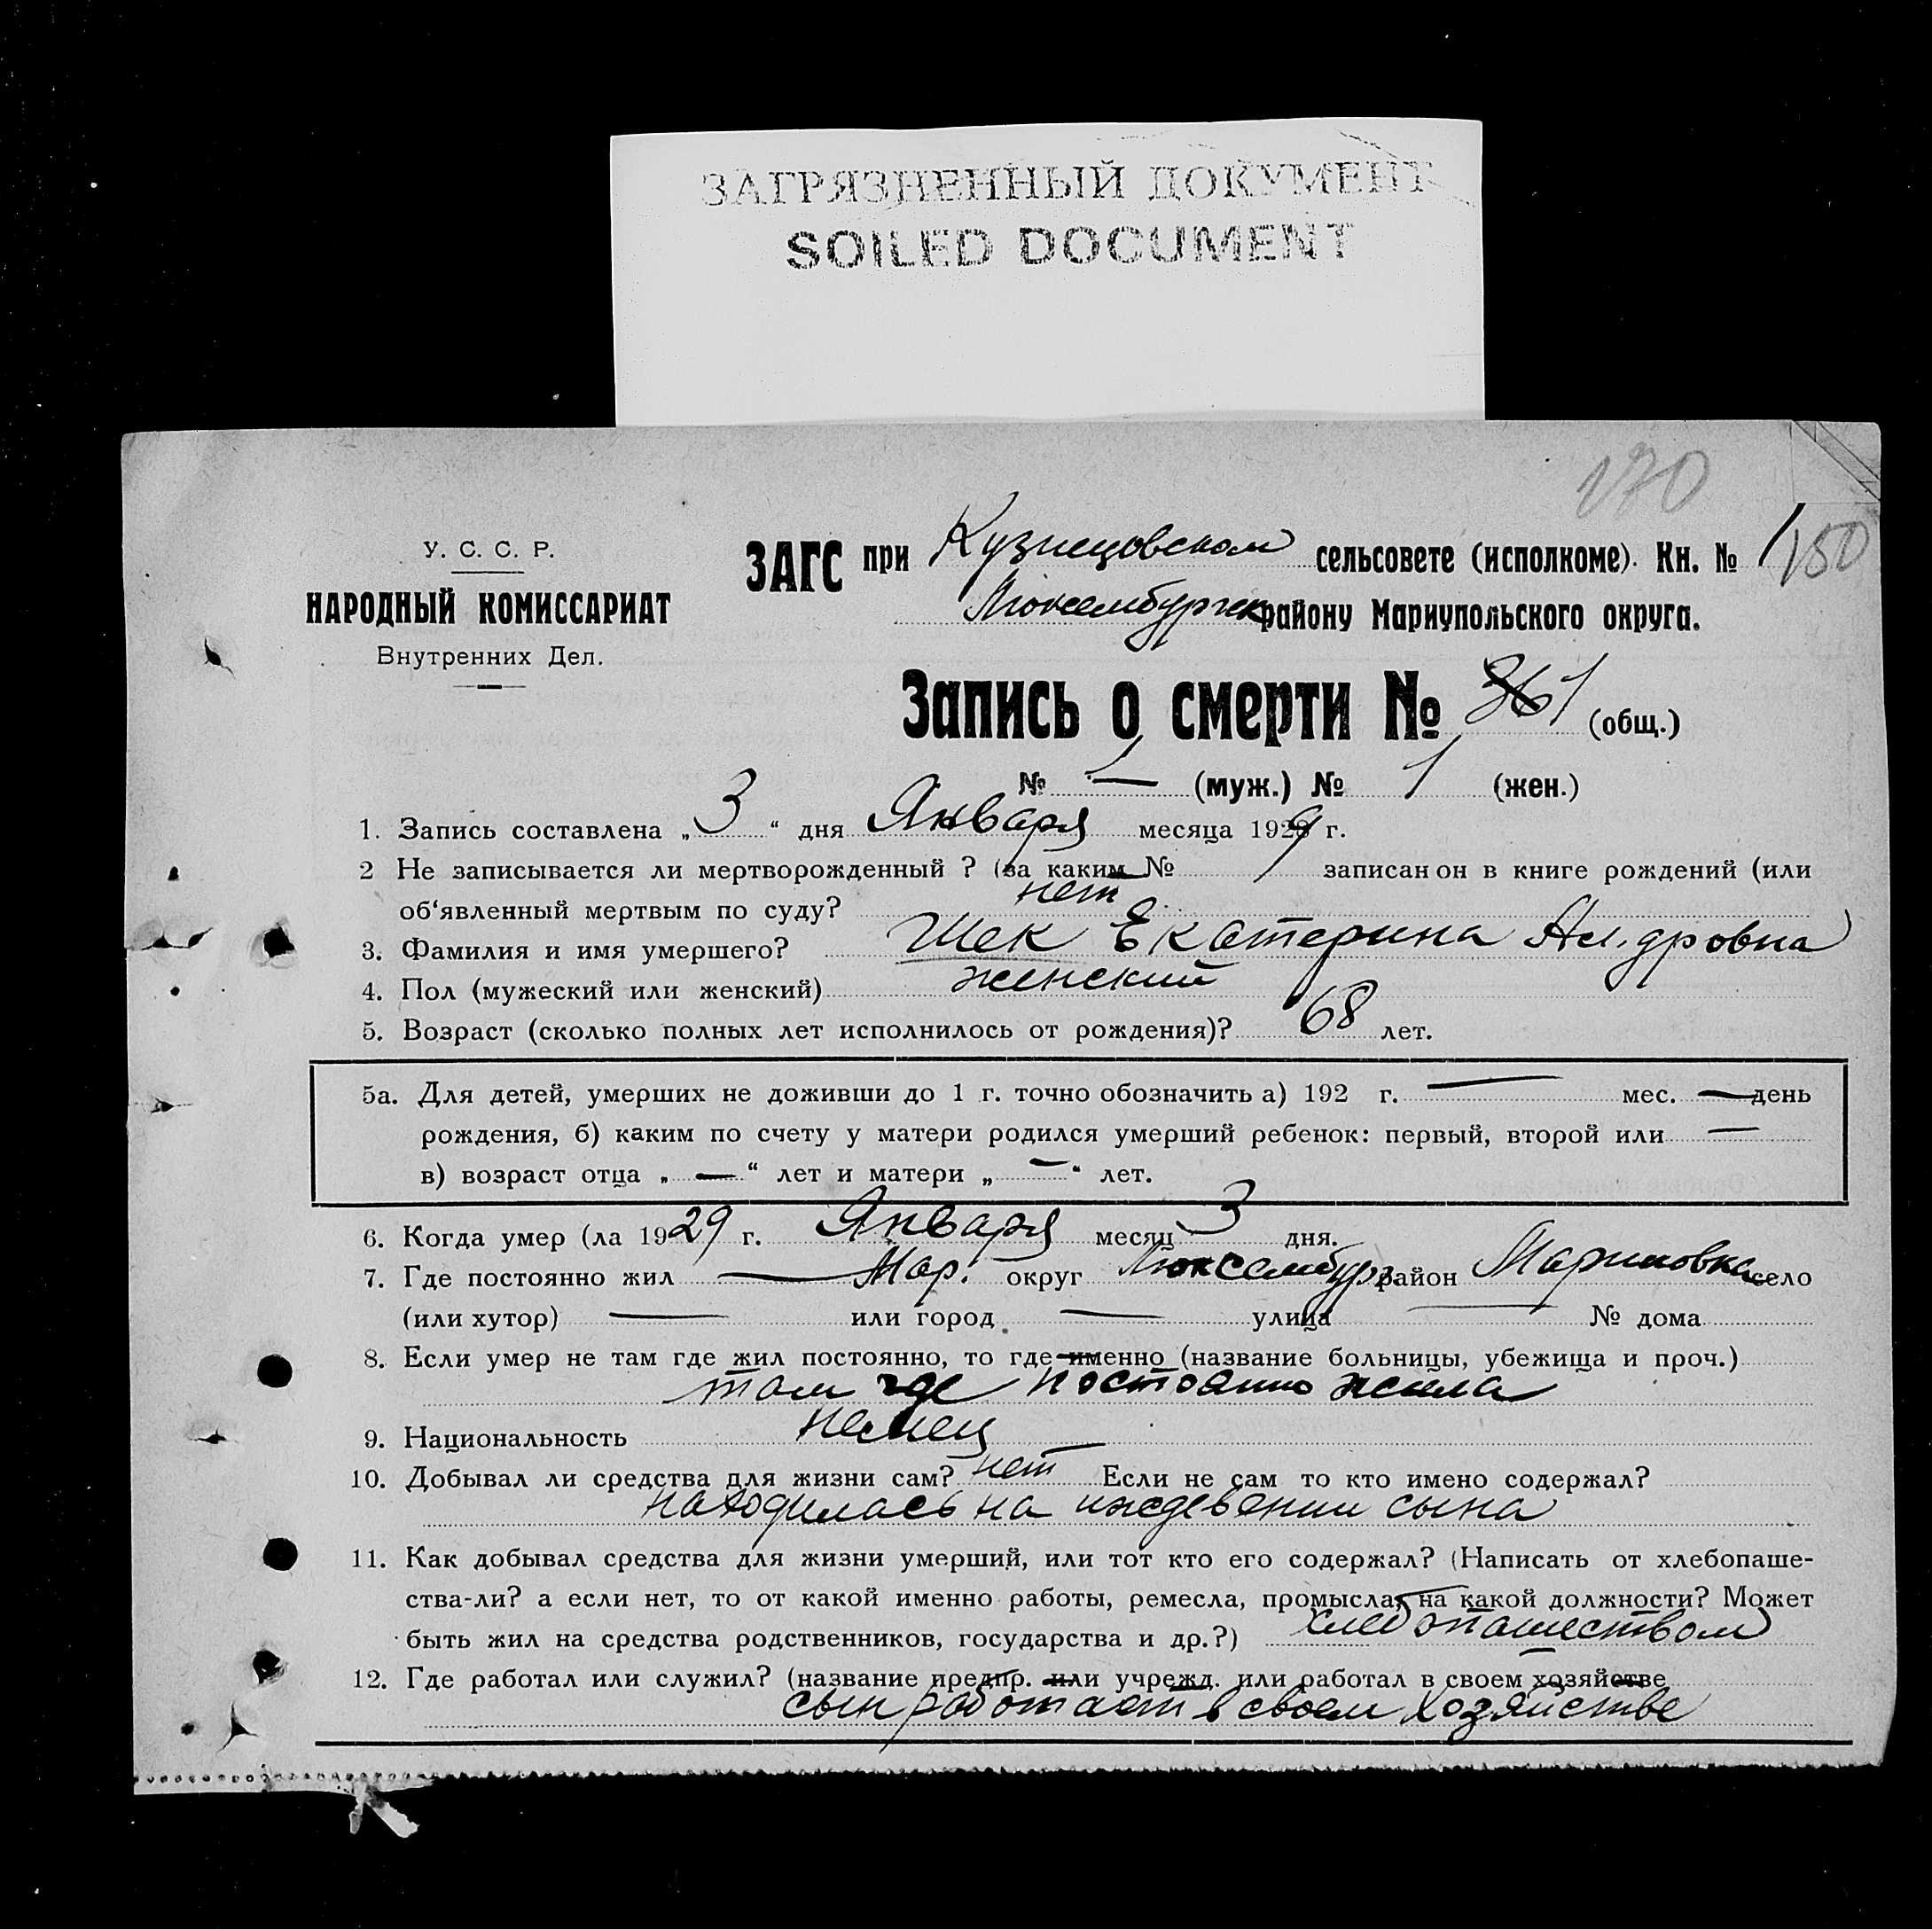 ЗАГРЯЗНЕННЫЙ ДОКУМЕНТ
SOILED DOCUMENT
170
У. С. С. Р.
НАРОДНЫЙ КОМИССАРИАТ
Внутренних Дел.
ЗАГС при Кузнецовском сельсовете (исполкоме). Кн. № 1
150
Люксембургск району Мариупольского округа.
Запись о смерти № 1 (общ.)
№ — (муж.) № 1 (жен.)
1. Запись составлена „3“ дня Января месяца 1929 г.
2 Не записывается ли мертворожденный ? (за каким № записан он в книге рождений (или
об‘явленный мертвым по суду? нет
3. Фамилия и имя умершего? Шек Екатерина Ал.дровна
4. Пол (мужеский или женский) женский
5. Возраст (сколько полных лет исполнилось от рождения)? 68 лет.
5а. Для детей, умерших не доживши до 1 г. точно обозначить а) 192 г. — мес. — день
рождения, б) каким по счету у матери родился умерший ребенок: первый, второй или —
в) возраст отца „—“ лет и матери „—“ лет.
6. Когда умер (ла 1929 г. Января месяц 3 дня.
7. Где постоянно жил — Мар. округ Люксембург район Мариновка село
(или хутор) — или город — улица — № дома
8. Если умер не там где жил постоянно, то где именно (название больницы, убежища и проч.)
там где постоянно жила
9. Национальность немец
10. Добывал ли средства для жизни сам? нет Если не сам то кто имено содержал?
находилась на иждевении сына
11. Как добывал средства для жизни умерший, или тот кто его содержал? (Написать от хлебопаше-
ства-ли? а если нет, то от какой именно работы, ремесла, промысла, на какой должности? Может
быть жил на средства родственников, государства и др.?) хлебопашеством
12. Где работал или служил? (название предпр. или учрежд. или работал в своем хозяйстве
сын работает в своем хозяйстве